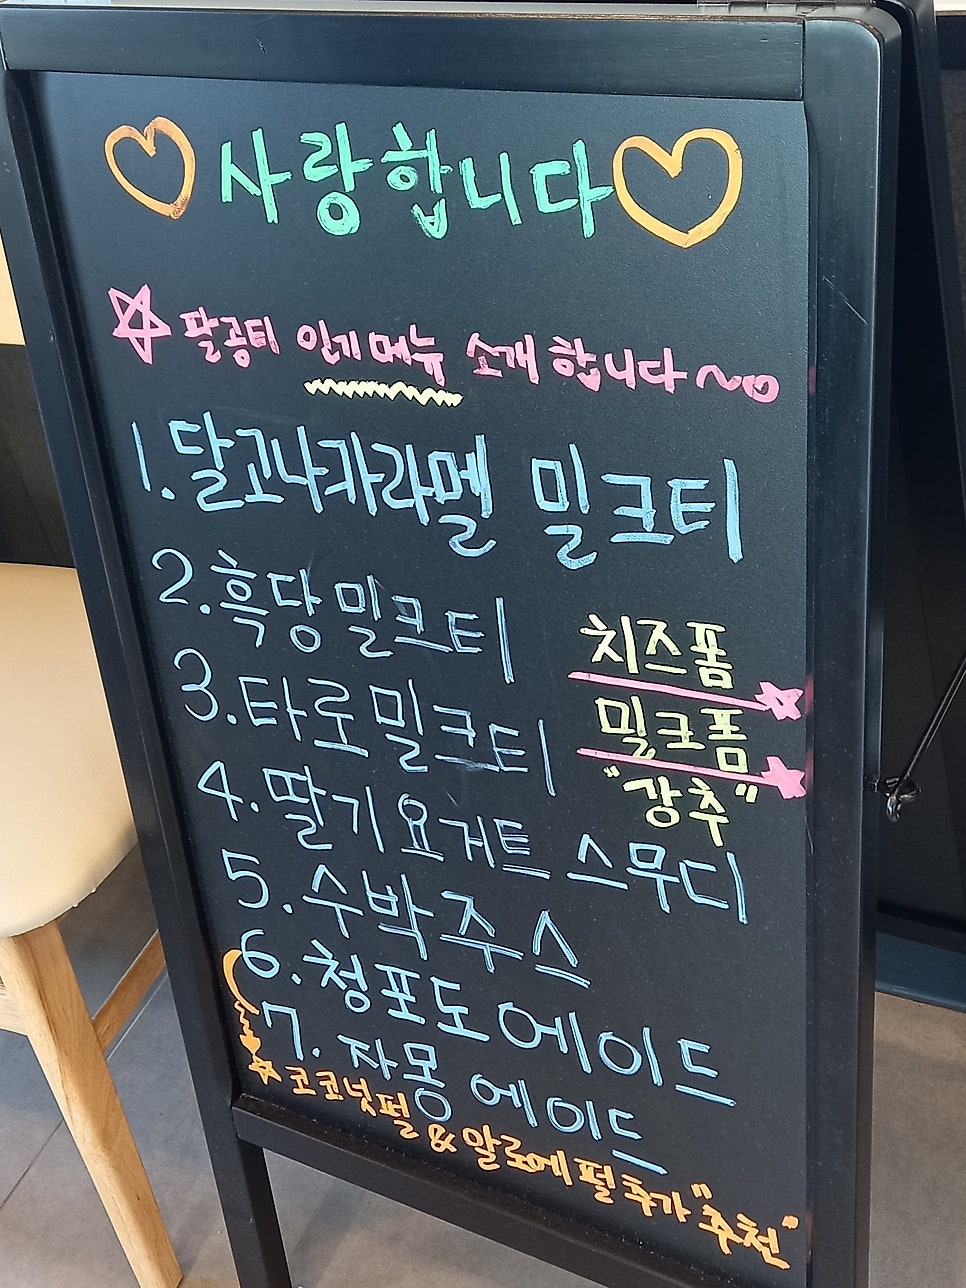 사랑합니다
팔공티 인기메뉴 소개합니다~
1. 달고나카라멜 밀크티
2. 흑당밀크티
3. 타로밀크티
치즈폼
밀크폼
"강추"
4. 딸기요거트 스무디
5. 수박주스
6. 청포도에이드
7. 자몽에이드
코코넛펄 & 알로에펄 추가 "추천"